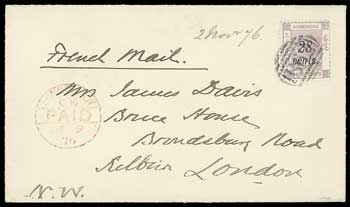 2 Nov 76.
28
cents.
French Mail.
Mrs James Davis
PAID
76
Bruce House
Brondsbury Road
Kilburn London
N.W.